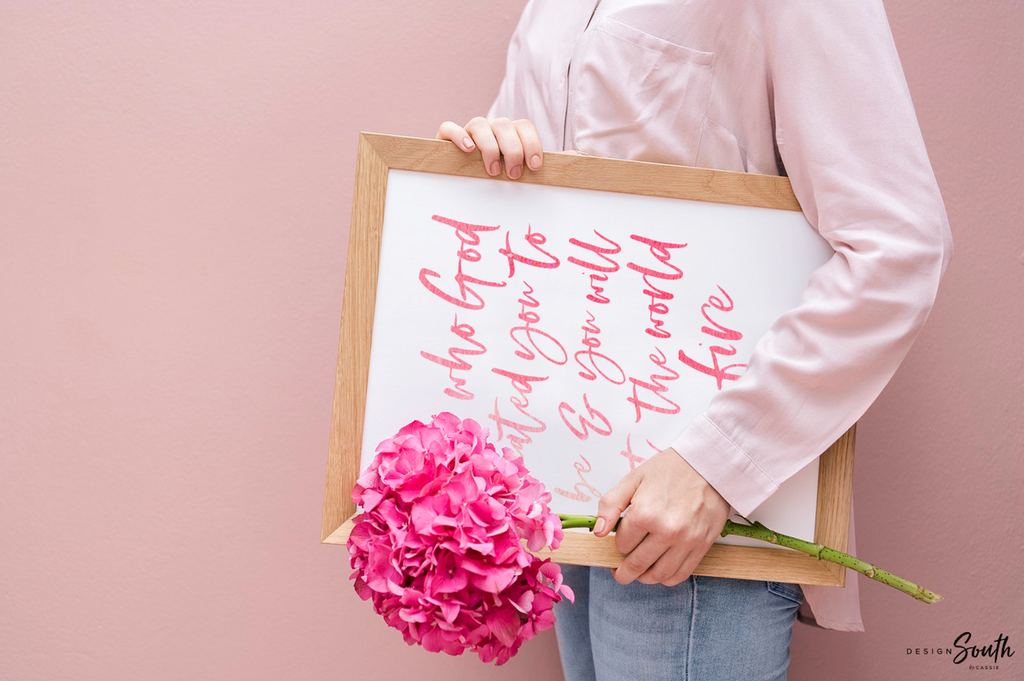 who God
ated you to
be & you will
the world
fire
DESIGN South
by CASSIE